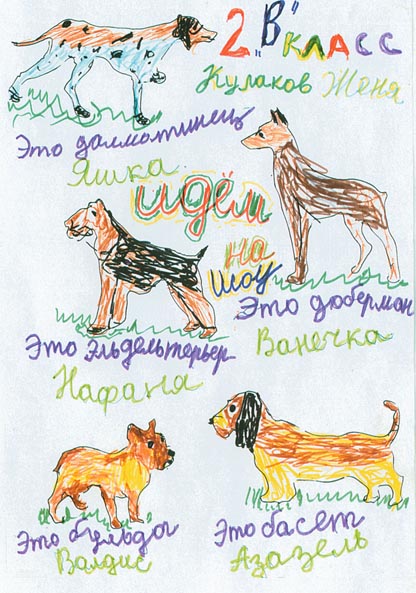 2 "В" класс
Кулаков Женя
Это далматинец
Яшка
идём
на
шоу
Это доберман
Ванечка
Это эльдельтерьер
Нафаня
Это бульдог
Валдис
Это басет
Азазель